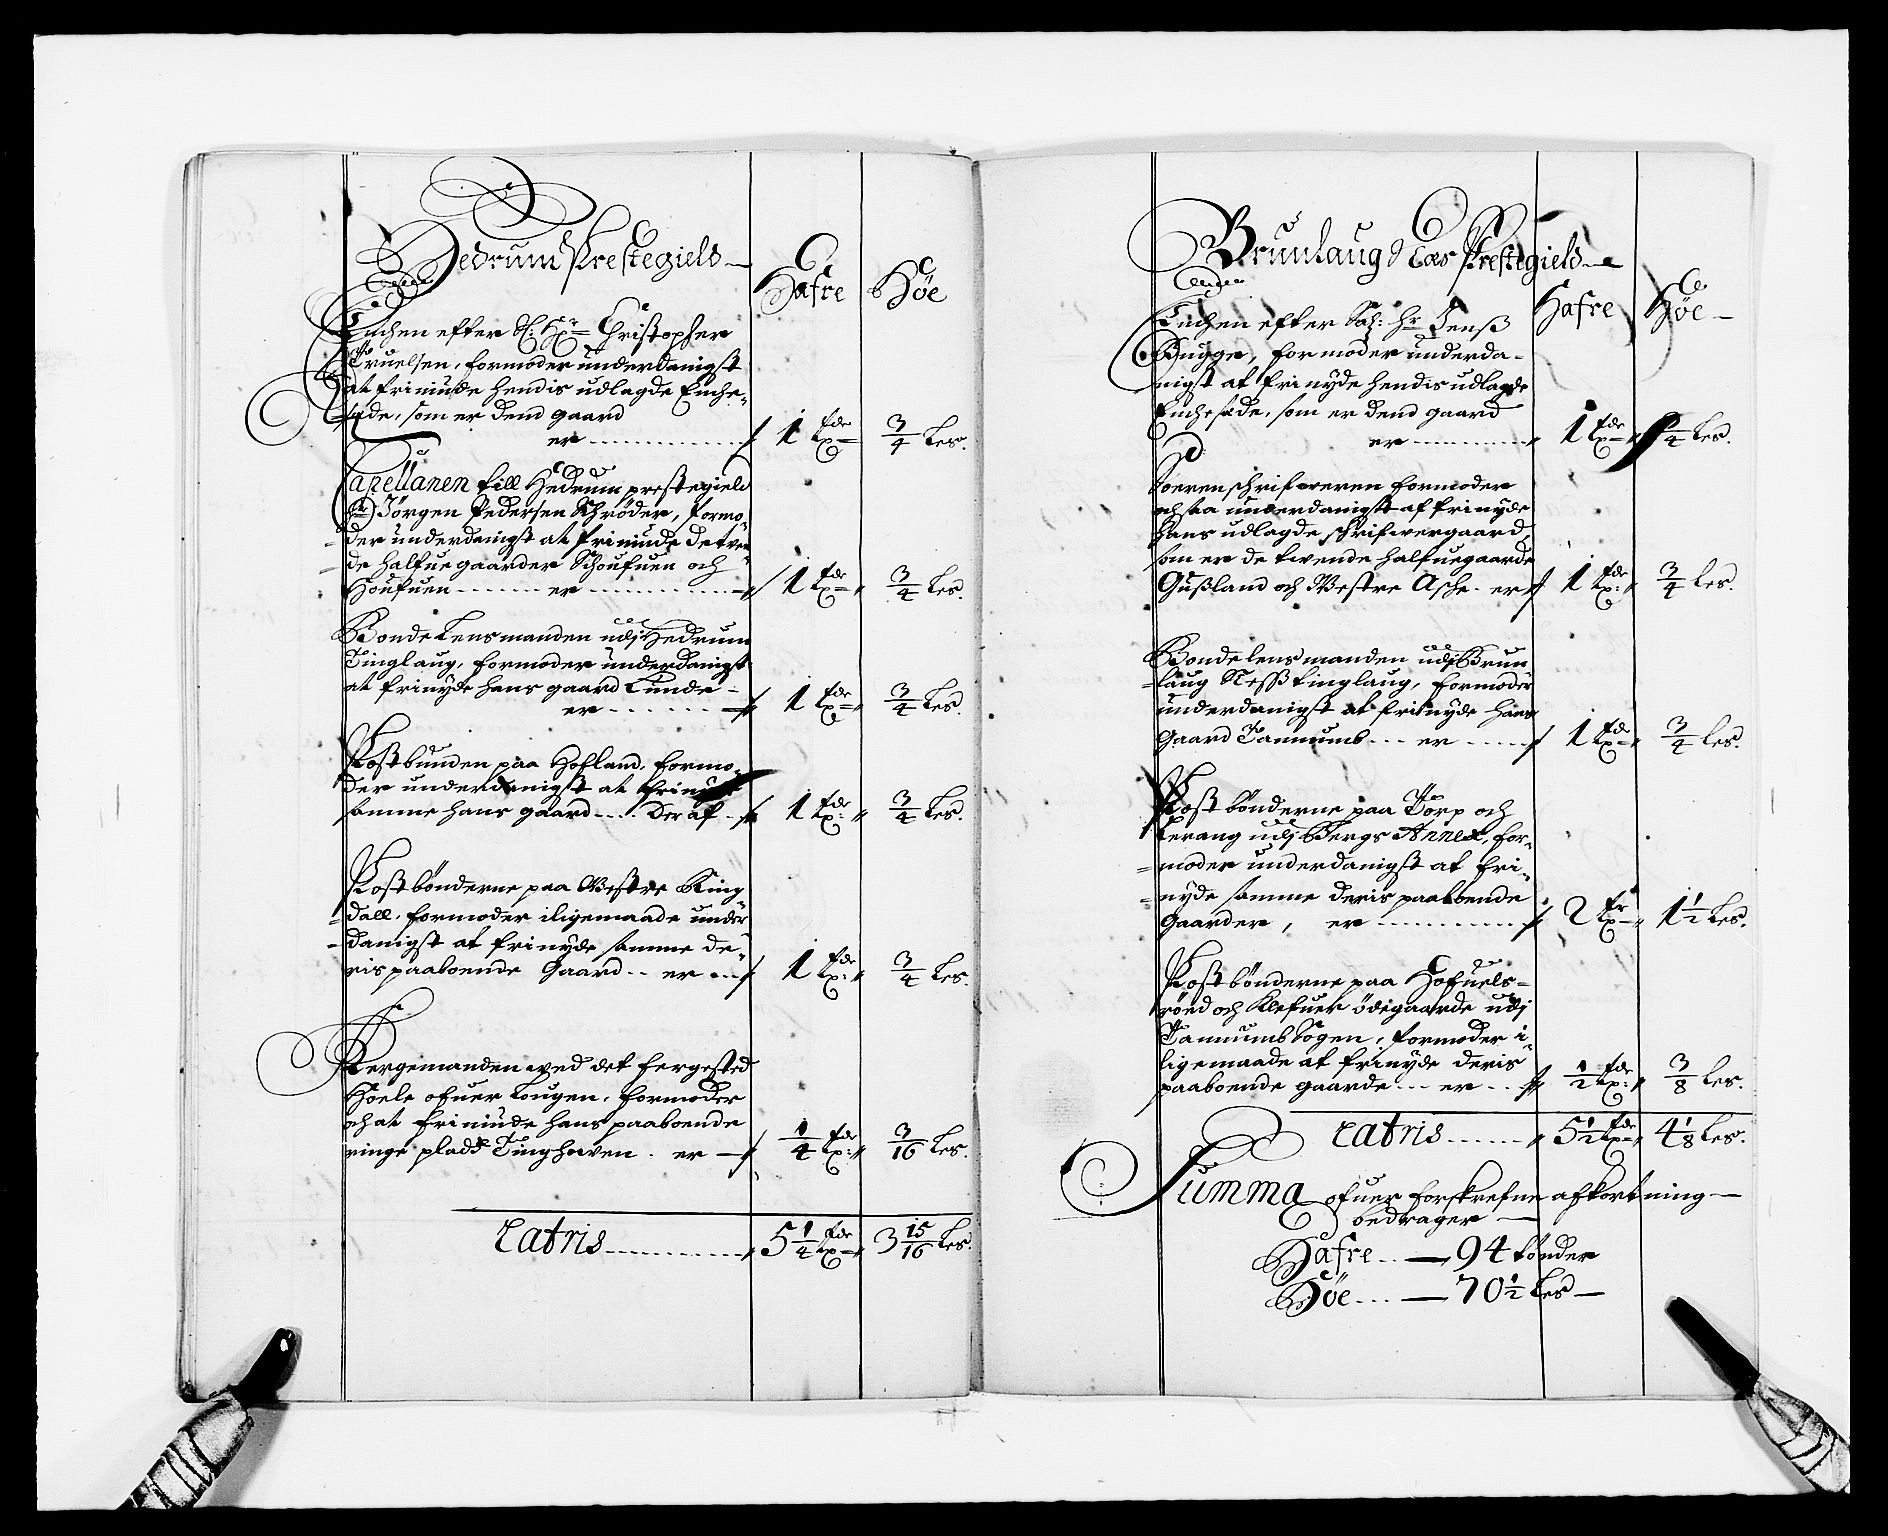 Hedrum Prestegield
Hafre
Høe
Enchen efter Sl: Hr Christopher
Truelsen, formoder underdanigst
at friniude hendis udlagde Enche-
sæde, som er dend gaard
er 1 tde 3/4 Les.
Capellanen till Hedrum prestegield
Hr Jørgen Pedersen Schrøder, formo-
der underdanigst at friniude de tven-
de halfue gaarder Schoufuen och
Houfuen er 1 tde 3/4 Les.
Bonde Lensmanden udj Hedrum
Tinglaug, formoder underdanigst
at frinyde hans gaard Lunde
er 1 tde 3/4 Les.
Postbunden paa Hofland, formo-
der underdanigst at friniude
samme hans gaard Der af 1 tde 3/4 Les.
Postbønderne paa Westre Ring-
dall, formoder iligemaade under-
danigst at frinyde samme de-
ris paaboende Gaard er 1 tde 3/4 Les.
Fergemanden wed det fergested
Hoele ofuer Lougen, formoder
och at friniude hans paaboende
ringe plads Tinghoven er 1/4 tde 3/16 Les.
Latris 5 1/4 tde 3 15/16 Les.
Brunlaug Næs Prestegield
Hafre
Høe
Enchen efter Sal: Hr Jenss
Bugge, formoder underda-
nigst at frinyde hendis udlagde
Enchesæde, som er dend gaard
er 1 tde 3/4 Les.
Sorenschrifweren formoder
ochsaa underdanigst at frinyde
hans udlagde schrifwergaard
som er de twende halfue gaarde
Gusland och Westre Asche er 1 tde 3/4 Les.
Bondelensmanden udj Brun-
laug Ness tinglaug, formoder
underdanigst at frinyde hans
Gaard Tanumb er 1 tde 3/4 Les.
Postbønderne paa Torp och
udj Bergs Annex, for-
moder underdanigst at fri-
nyde samme deris paaboende
Gaarder, er 2 tr 1 1/2 Les.
Postbønderne paa Hofuels-
røed och Klefuer ødegaarde udj
Tanumb Sogen, formoder i-
ligemaade at frinyde deris
paaboende gaarde er 1/2 tde 3/8 Les.
Latris 5 1/2 tde 4 1/8 Les.
Summa ofuer forskrefne afkortning
bedrager
Hafre 94 tønder
Høe 70 1/2 Les